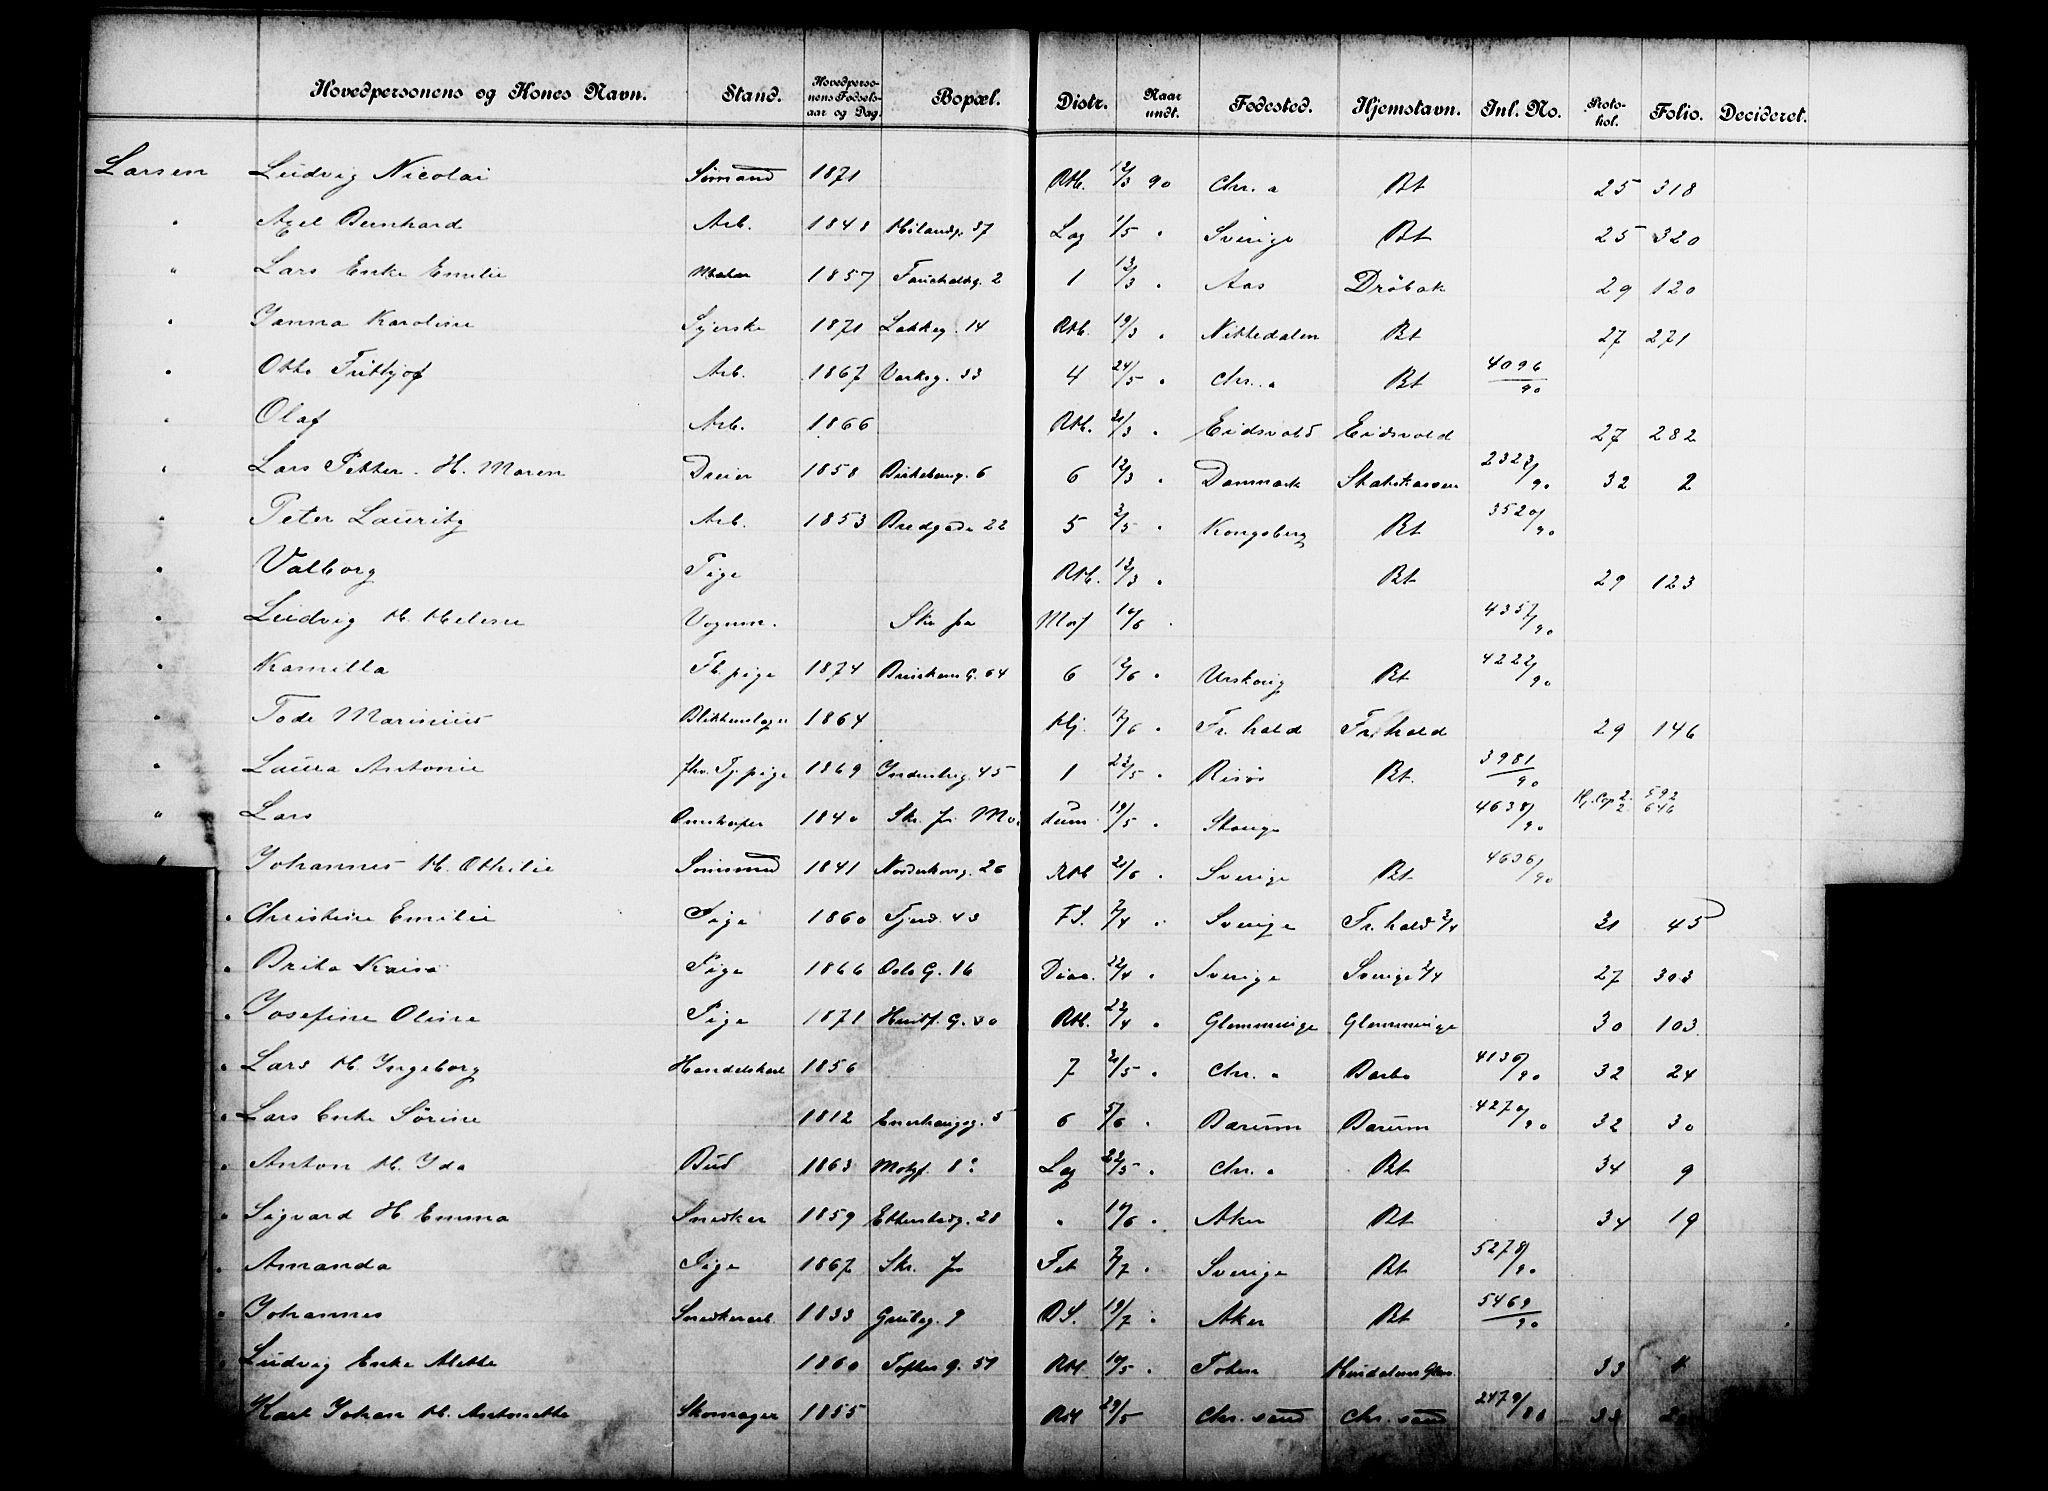 Hovedpersonens og Kones Navn. Stand. Hovedpersonens Fødselsaar og Dag. Bopæl. Distr. Naar undt. Fødested. Hjemstavn. Inl. No. Protokol. Folio. Decideret.
Larsen Ludvig Nicolai Sömand 1871 Rtb. 12/3 90 Chr.a Bt 25 318
" Axel Bernhard Arb. 1848 37 Lag 1/5 " Sverige Bt 25 320
" Lars Enke Emilie 1857 2 1 13/3 " Aas Dröbak 29 120
" Janna Karoline Syerske 1871 Lakkeg. 14 Rtb. 19/3 " Nittedalen Bt 27 271
" Otto Frithjof Arb. 1867 Verksg. 33 4 24/5 " Chr.a Bt 4096/90
" Olaf Arb. 1866 Rtb. 21/3 " Eidsvold Eidsvold 27 282
" Lars Petter. H. Maren Dreier 1858 6 6 12/3 " Danmark Statskassen 2323/90 32 2
" Peter Lauritz Arb. 1853 Bredgade 22 5 2/5 " Kongsberg Bt 3520/90
" Valborg Pige Rtb. 13/3 " Bt 29 123
" Ludvig H. Helene Vognm. Skr fra 4357/90
" Kamilla Fb. pige 1874 64 6 12/6 " Urskoug Bt 4222/90
" Tode Marinius Blikkenslager 1864 Hj. 17/6 " Fr. hald Fr. hald 29 146
" Laura Antonie 1869 Industrig. 45 1 23/5 " Risör Bt. 3981/90
" Lars 1840 Skr. fr. Modum 19/5 " Stange 4638/90 592 646
" Johannes H. Othilie Sömand 1841 Norderhovg. 26 Rtb 21/6 " Sverige Bt 4636/90
" Christine Emilie Pige 1860 43 F.S. 2/4 " Sverige Fr. hald 2/4 31 45
" Brita Kaisa Pige 1866 Oslo G. 16 Diac. 22/4 " Sverige Sverige 2/4 27 303
" Josefine Oline Pige 1871 Herslf. G. 30 Rtb. 23/4 " Glemminge Glemminge 30 103
" Lars H. Ingeborg Handelskarl 1856 7 21/5 " Chr.a Barbo 4136/90 32 24
" Lars Enke Sörine 1812 Enerhaugsg. 5 6 5/6 " Bærum Bærum 4270/90 32 30
" Anton H. Ida Bud 1863 Motzf. 8 Lag 22/5 " Chr.a Bt 34 9
" Sigvard H. Emma Snedker 1859 Etterstadg. 28 " 14/6 " Aker Bt 34 19
" Amanda Pige 1867 Skr. fr Fet 2/7 " Sverige Bt 5278/90
" Johannes Snedkerarb. 1833 Grubeg. 9 D.S. 19/7 " Aker Bt 5469/90
" Ludvig Enke Alette 1860 Toftes G. 51 Rtb. 10/5 " Toten 33
Karl Johan H. Antonette Skomager 1855 Rtb 29/5 Chr. sand Chr. sand 2479/80 33